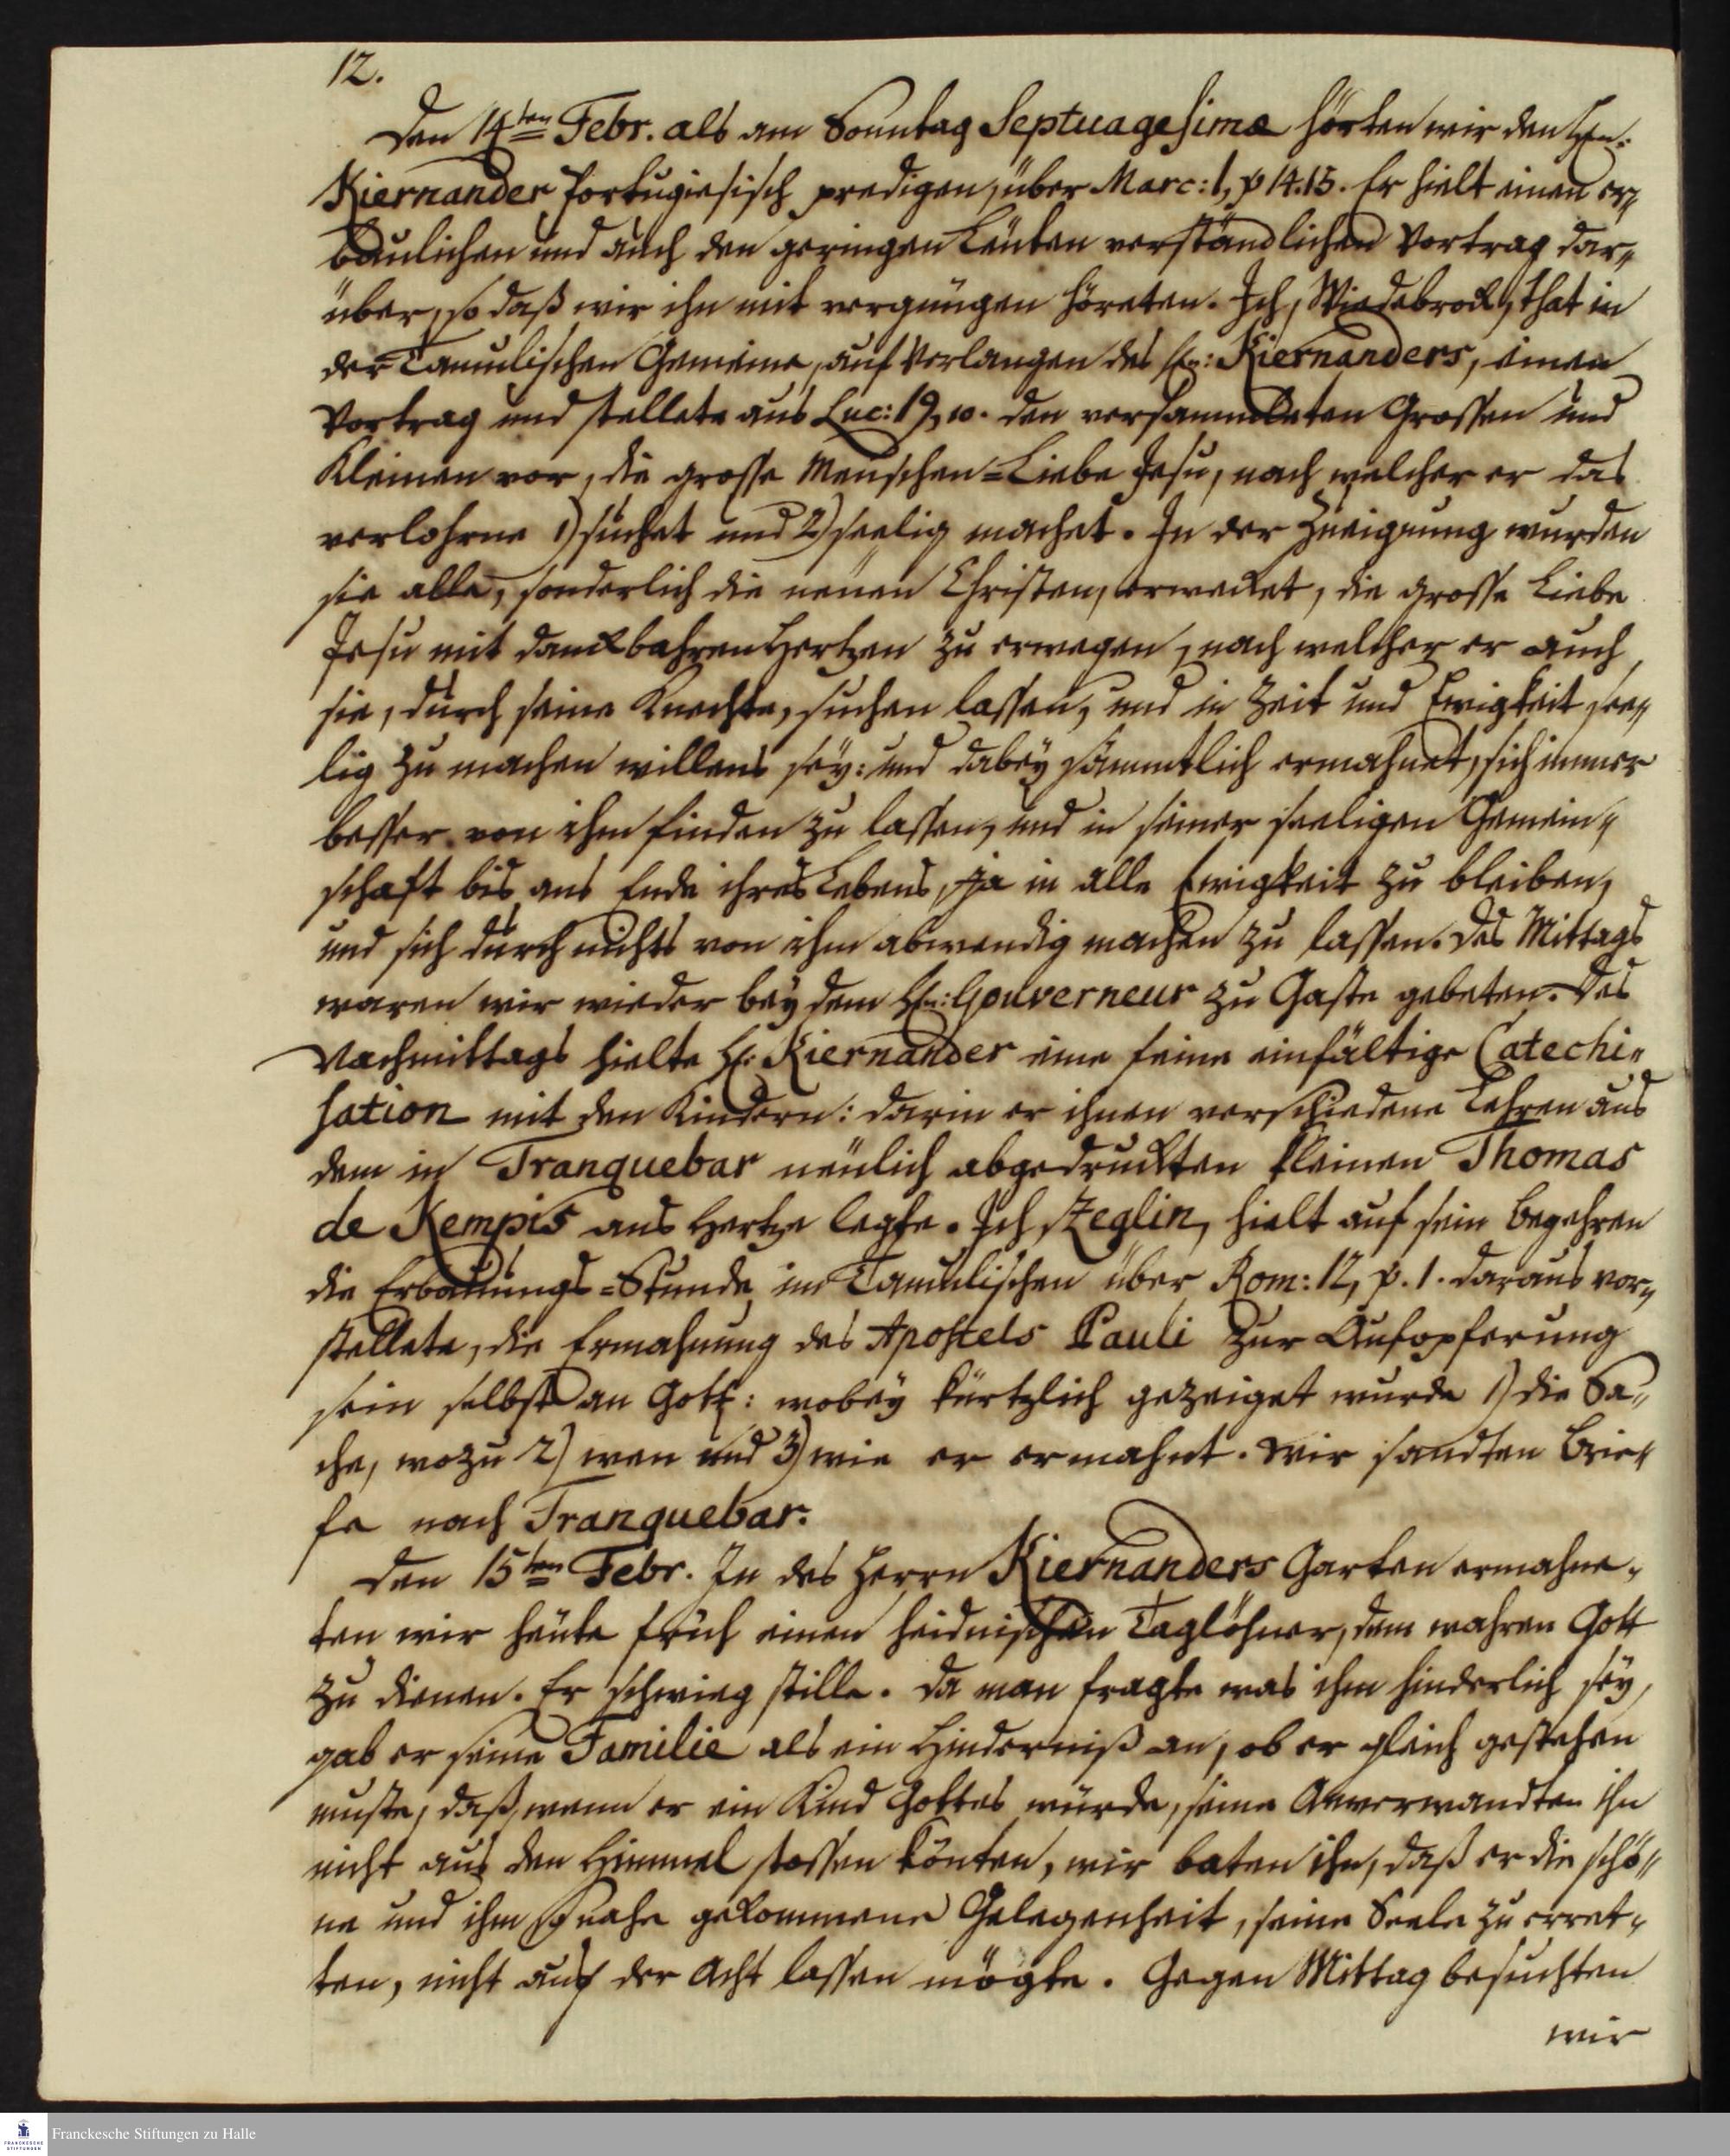 12.
Den 14ten Febr. als am Sonntag Septuagesimæ hörten wir den Hrn:
Kiernander Portugiesisch predigen, über Marc: 1, v 14.15. Er hielt einen er„
baulichen und auch den geringen Leüten verständlichen Vortrag dar„
über, so daß wir ihn mit vergnügen höreten. Ich, Wiedebrock, that in
der Tamulischen Gemeine, auf Verlangen des Hn: Kiernanders, einen
Vortrag und stellete aus Luc: 19, 10. den versammleten Grossen und
Kleinen vor, die grosse Menschen=Liebe Jesu, nach welcher er das
verlohrne 1) suchet und 2) seelig machet. In der Zueignung wurden
sie alle, sonderlich die neuen Christen, erwecket, die grosse Liebe
Jesu mit danckbahren Hertzen zu erwegen, nach welcher er auch
sie, durch seine Knechte, suchen lassen, und in Zeit und Ewigkeit see„
lig zu machen willens sey: und dabey sämmtlich ermahnet, sich immer
besser von ihm finden zu lassen, und in seiner seeligen Gemein„
schaft bis ans Ende ihres Lebens, ja in alle Ewigkeit zu bleiben,
und sich durch nichts von ihm abwendig machen zu lassen. Des Mittags
waren wir wieder bey dem Hn: Gouverneur zu Gaste gebeten. Des
Nachmittags hielte Hr. Kiernander eine feine einfältige Catechi„
sation mit den Kindern: darin er ihnen verschiedene Lehren aus
dem in Tranquebar neulich abgedruckten kleinen Thomas
de Kempis ans Hertze legte. Ich, Zeglin, hielt auf sein Begehren
die Erbauungs=Stunde im Tamulischen über Rom: 12, v. 1. daraus vor„
stellete, die Ermahnung des Apostels Pauli zur Aufopferung
sein selbst an Gott: wobey kürtzlich gezeiget wurde 1) die Sa„
che, wozu 2) wen und 3) wie er ermahnt. Wir sandten Brie„
fe nach Tranquebar.
Den 15ten Febr. In des Herrn Kiernanders Garten ermahne„
ten wir heute früh einen heidnischen Taglöhner, dem wahren Gott
zu dienen. Er schwieg stille. Da man fragte was ihm hinderlich sey,
gab er seine Familie als ein Hinderniß an, ob er gleich gestehen
muste, daß, wenn er ein Kind Gottes würde, seine Anverwandten ihn
nicht aus den Himmel stossen könten, wir baten ihn, daß er die schö„
ne und ihm so nahe gekommene Gelegenheit, seine Seele zu erret„
ten, nicht aus der Acht lassen mögte. Gegen Mittag besuchten
wir
FRANCKESCHE STIFTUNGEN
Franckesche Stiftungen zu Halle